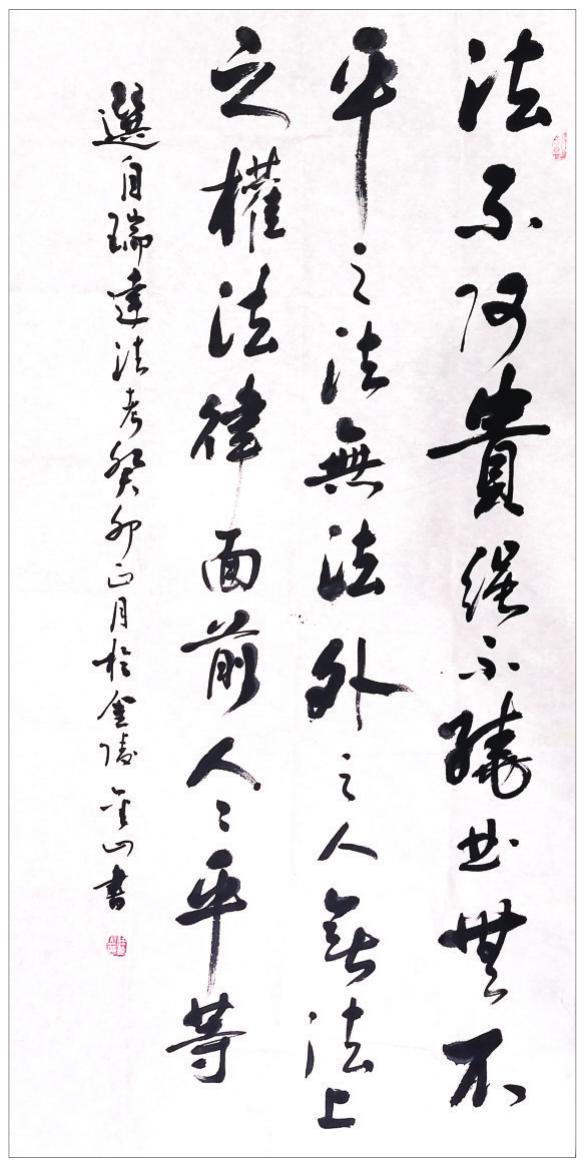 法不阿貴绳不繞曲世無不
平之法無法外之人無法上
之權法律面前人々平等
選自瑞達法考癸卯正月於金陵金山書